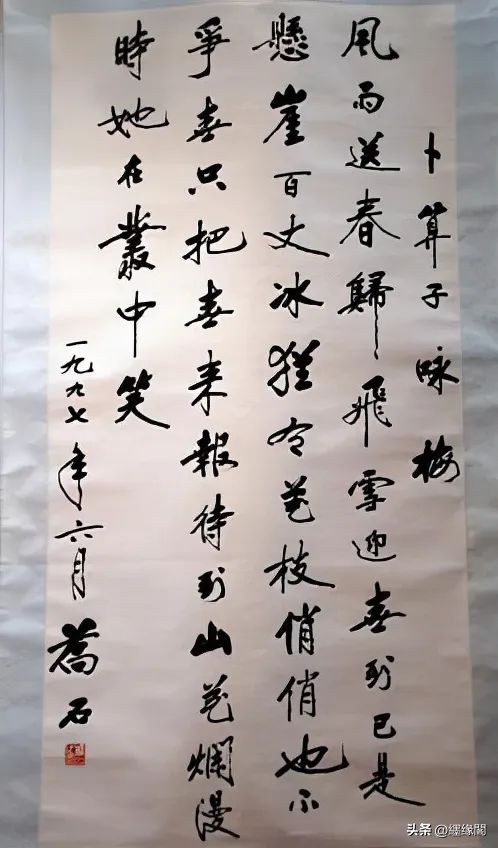 卜算子咏梅
風雨送春歸飛雪迎春到已是
懸崖百丈冰猶有花枝俏俏也不
爭春只把春来報待到山花爛漫
時她在叢中笑
一九九七年六月 喬石
头条 @經缘閣